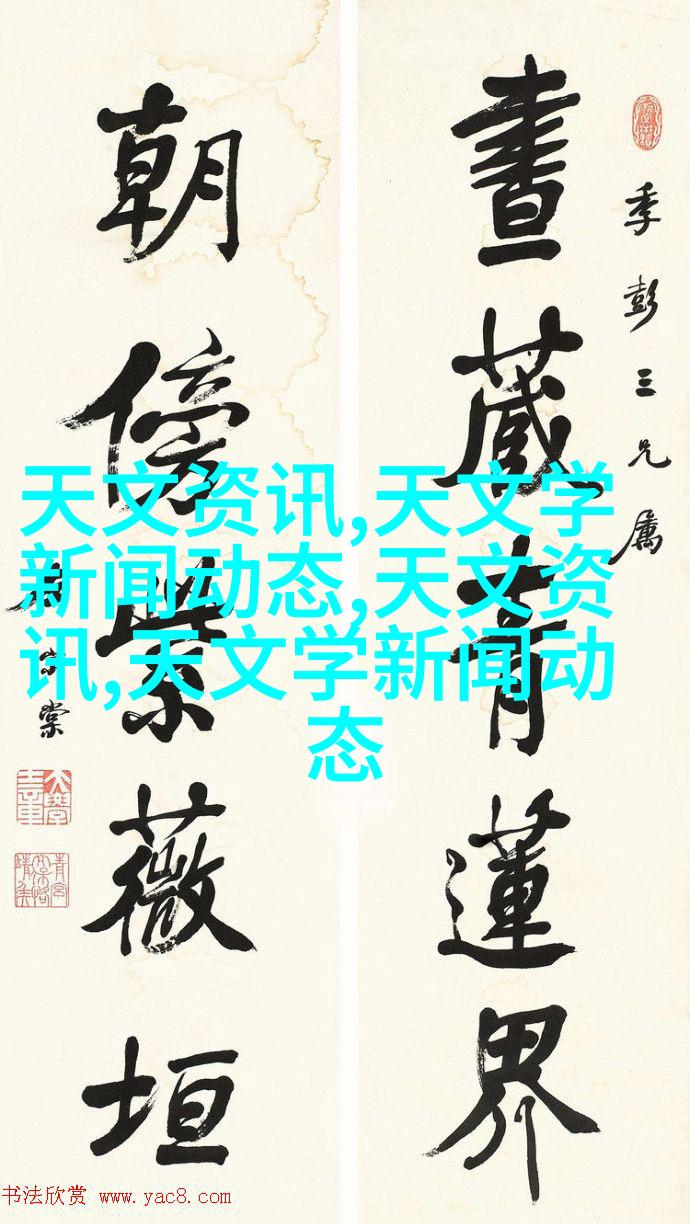 季彭三兄属
畫藏青蓮界
朝傍紫薇垣
左宗棠
天文资讯,天文学
新闻动态,天文资
讯,天文学新闻动
态
书法欣赏 www.yac8.com